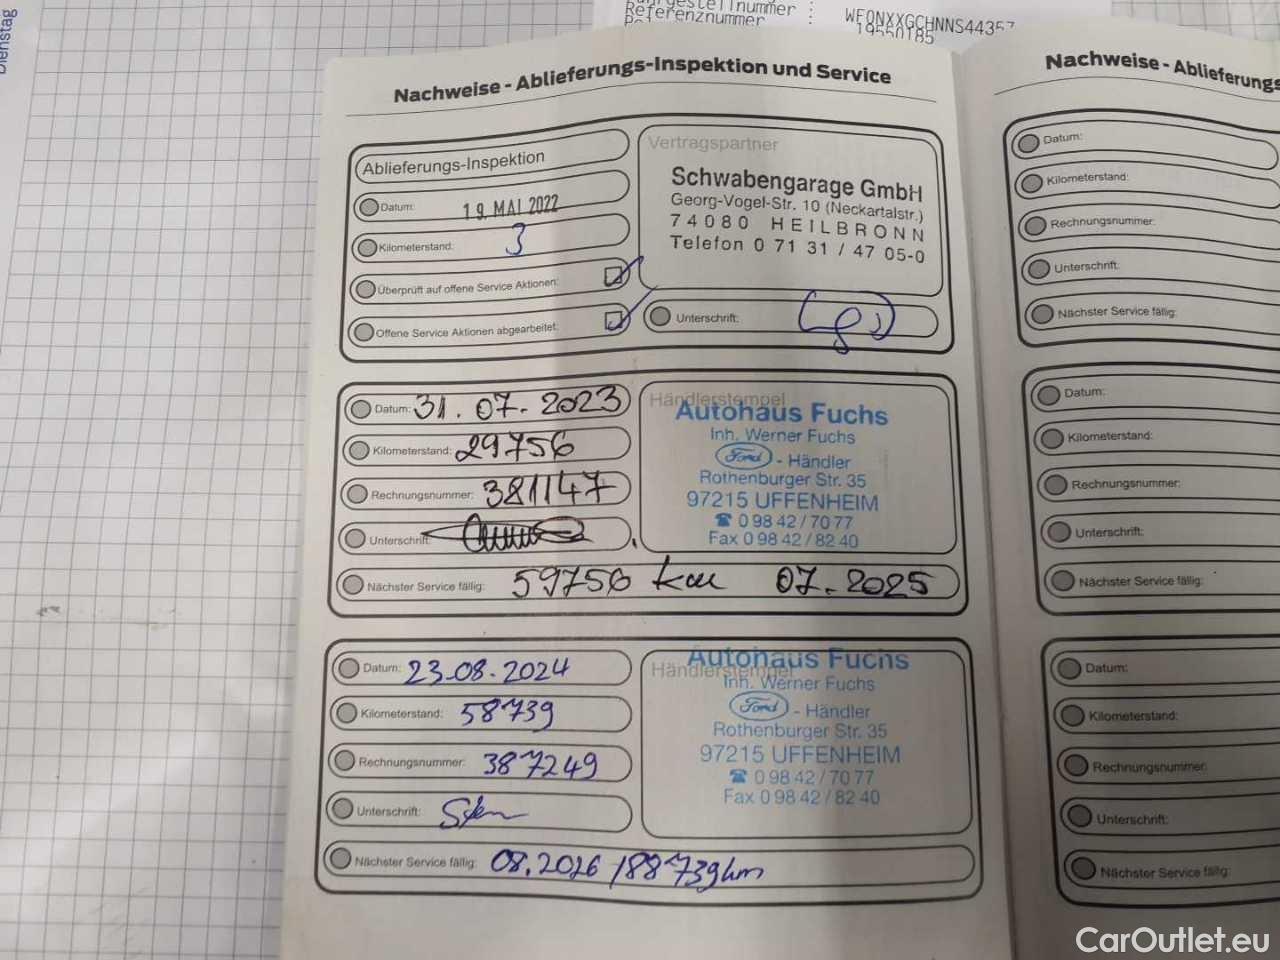 Dienstag
Fahrgestellnummer : WF0NXXGCHNNS44357
Referenznummer : 19550185
Nachweise - Ablieferungs-Inspektion und Service
Ablieferungs-Inspektion
Datum: 19. MAI 2022
Kilometerstand: 3
Überprüft auf offene Service Aktionen:
Offene Service Aktionen abgearbeitet:
Vertragspartner
Schwabengarage GmbH
Georg-Vogel-Str. 10 (Neckartalstr.)
74080 HEILBRONN
Telefon 0 71 31 / 47 05-0
Unterschrift:
Datum: 31.07.2023
Kilometerstand: 29756
Rechnungsnummer: 381147
Unterschrift:
Händlerstempel
Autohaus Fuchs
Inh. Werner Fuchs
Ford - Händler
Rothenburger Str. 35
97215 UFFENHEIM
☎ 0 98 42 / 70 77
Fax 0 98 42 / 82 40
Nächster Service fällig: 59756 km 07.2025
Datum: 23.08.2024
Kilometerstand: 58739
Rechnungsnummer: 387249
Unterschrift:
Händlerstempel
Autohaus Fuchs
Inh. Werner Fuchs
Ford - Händler
Rothenburger Str. 35
97215 UFFENHEIM
☎ 0 98 42 / 70 77
Fax 0 98 42 / 82 40
Nächster Service fällig: 08.2026 / 88739km
Nachweise - Ablieferungs
Datum:
Kilometerstand:
Rechnungsnummer:
Unterschrift:
Nächster Service fällig:
Datum:
Kilometerstand:
Rechnungsnummer:
Unterschrift:
Nächster Service fällig:
Datum:
Kilometerstand:
Rechnungsnummer:
Unterschrift:
Nächster Service fällig:
CarOutlet.eu